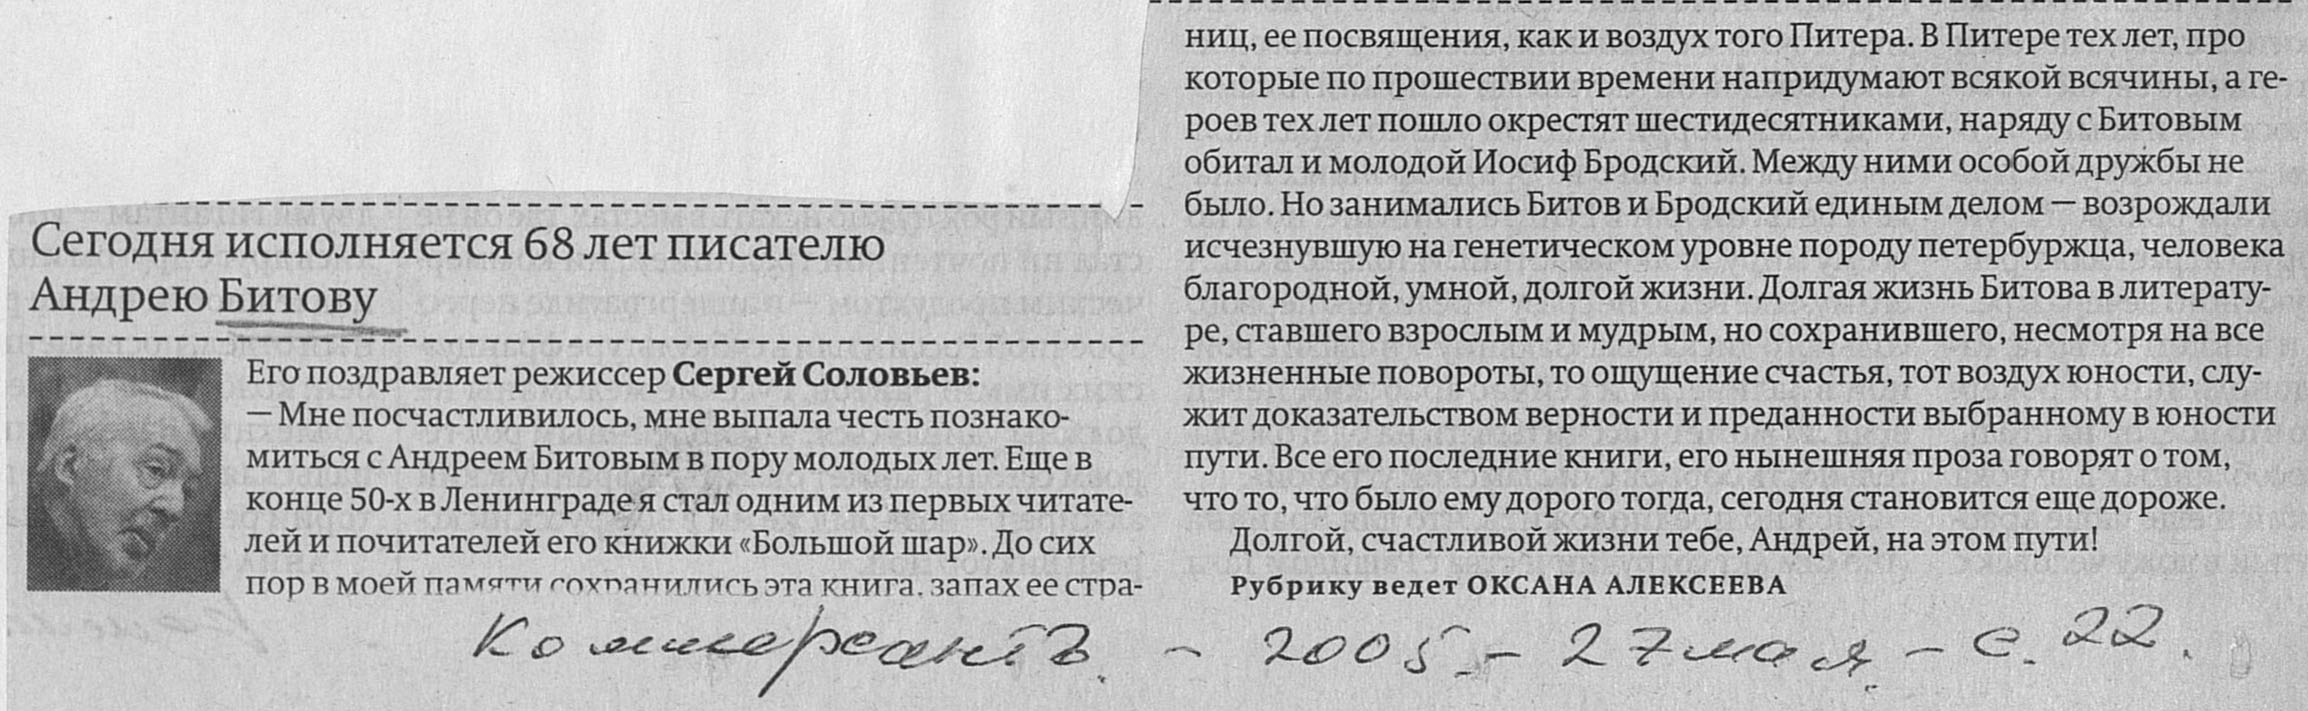 Сегодня исполняется 68 лет писателю
Андрею Битову
Его поздравляет режиссер Сергей Соловьев:
— Мне посчастливилось, мне выпала честь познако-
миться с Андреем Битовым в пору молодых лет. Еще в
конце 50-х в Ленинграде я стал одним из первых читате-
лей и почитателей его книжки «Большой шар». До сих
пор в моей памяти сохранились эта книга, запах ее стра-
ниц, ее посвящения, как и воздух того Питера. В Питере тех лет, про
которые по прошествии времени напридумают всякой всячины, а ге-
роев тех лет пошло окрестят шестидесятниками, наряду с Битовым
обитал и молодой Иосиф Бродский. Между ними особой дружбы не
было. Но занимались Битов и Бродский единым делом — возрождали
исчезнувшую на генетическом уровне породу петербуржца, человека
благородной, умной, долгой жизни. Долгая жизнь Битова в литерату-
ре, ставшего взрослым и мудрым, но сохранившего, несмотря на все
жизненные повороты, то ощущение счастья, тот воздух юности, слу-
жит доказательством верности и преданности выбранному в юности
пути. Все его последние книги, его нынешняя проза говорят о том,
что то, что было ему дорого тогда, сегодня становится еще дороже.
Долгой, счастливой жизни тебе, Андрей, на этом пути!
Рубрику ведет ОКСАНА АЛЕКСЕЕВА
Коммерсантъ. – 2005. – 27 мая. – с. 22.